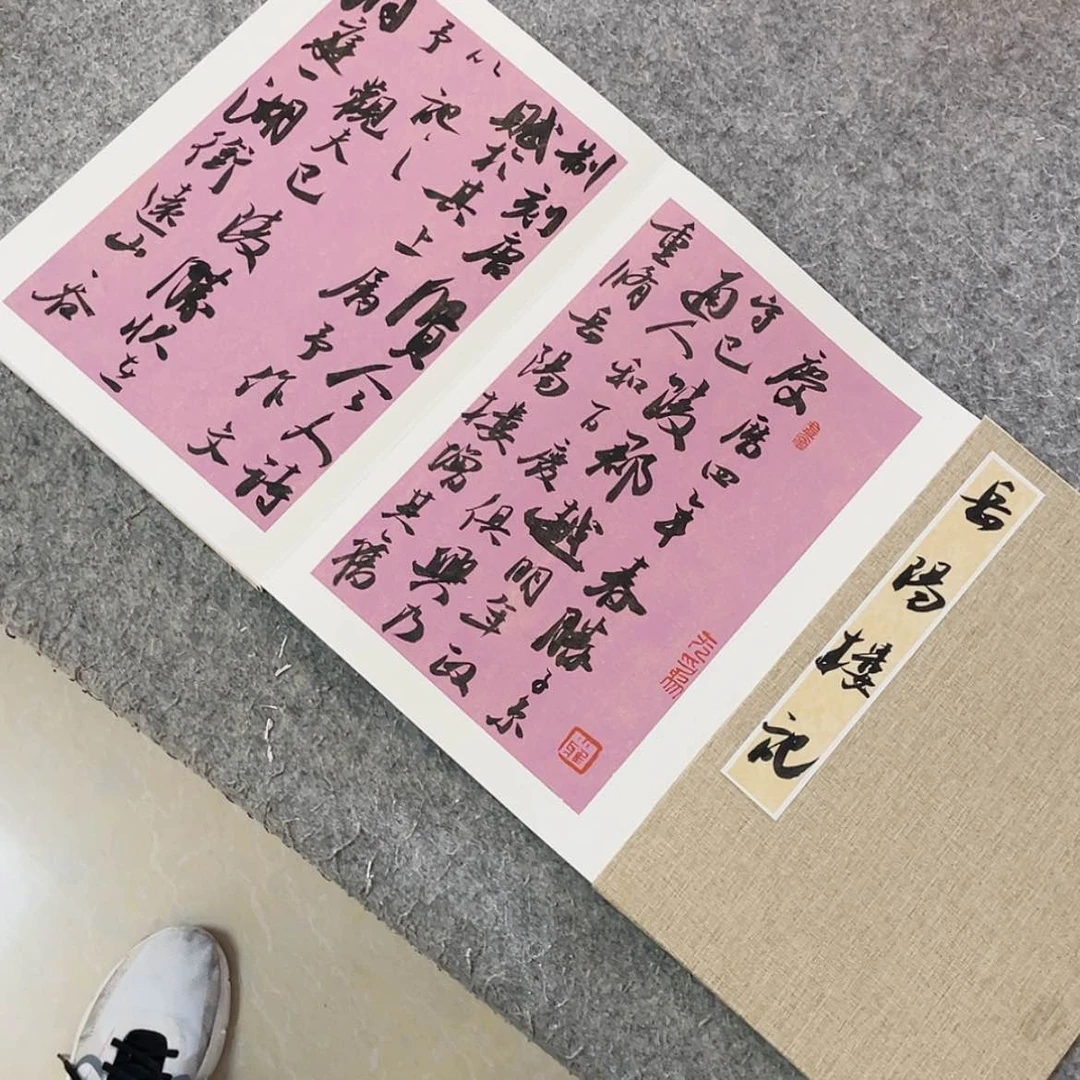 岳陽樓記
慶曆四年春滕子京
守巴陵郡越明年政
通人和百廢俱興乃
重脩岳陽樓增其舊
制刻唐賢今人詩
賦於其上屬予作文
以記之
予觀夫巴陵勝狀在
洞庭一湖銜遠山吞